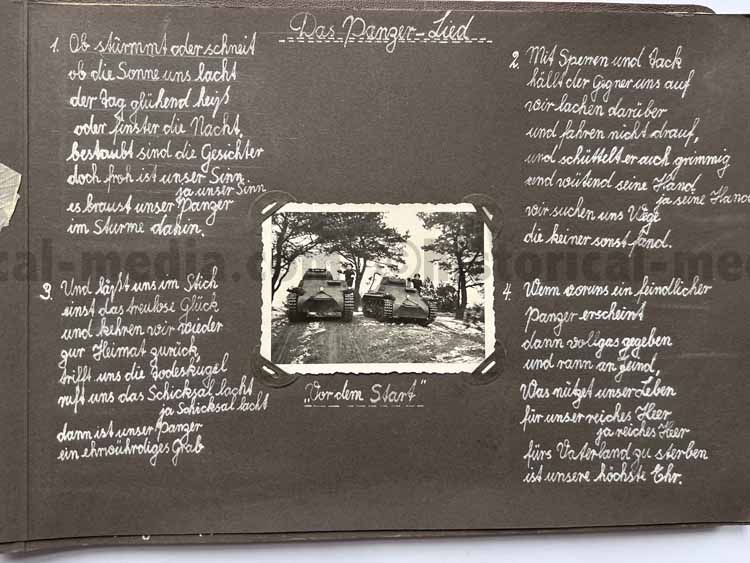 Das Panzer-Lied
1. Ob stürmmt oder schneit
ob die Sonne uns lacht
der Tag glühend heiß
oder finster die Nacht.
bestaubt sind die Gesichter
doch froh ist unser Sinn.
ja unser Sinn
es braust unser Panzer
im Sturme dahin.
2. Mit Sperren und Tack
hällt der Gegner uns auf
wir lachen darüber
und fahren nicht drauf,
und schüttelt er auch grimmig
und wütend seine Hand
ja seine Hand
wir suchen uns Wege
die keiner sonst fand.
3. Und läßt uns im Stich
einst das treulose Glück
und kehren wir wieder
zur Heimat zurück,
trifft uns die Todeskugel
ruft uns das Schicksal lacht
ja Schicksal lacht
dann ist unser Panzer
ein ehrwührdiges Grab
4. Wenn vor uns ein feindlicher
Panzer erscheint
dann vollgas gegeben
und rann an Feind,
Was nützet unser Leben
für unser reiches Heer
ja reiches Heer
fürs Vaterland zu sterben
ist unsere höchste Ehr.
„Vor dem Start"
historical-media.com
© historical-media